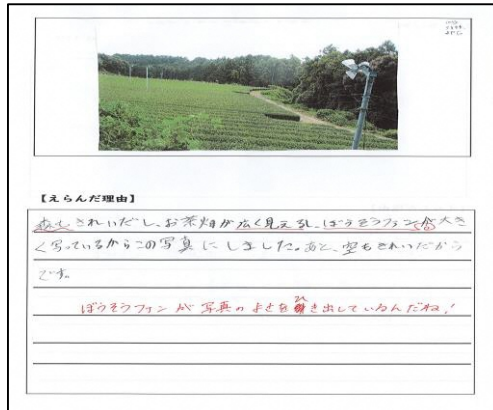 【えらんだ理由】
森もきれいだし、お茶畑が広く見えるし、ぼうそうファンが大き
く写っているからこの写真にしました。あと、空もきれいだから
です。
ぼうそうファンが写真のよさを引き出しているんだね！